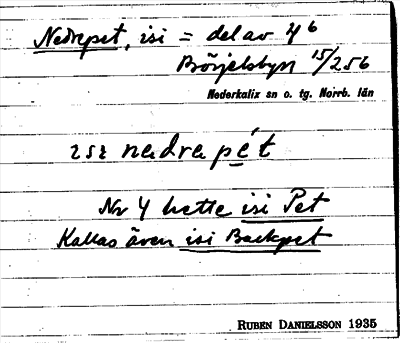 Nedrepet, isi = del av 4⁶
Börjelsbyn 15/256
Nederkalix sn o. tg. Norrb. län
ısı nedra pét
Nr 4 hette isi Pet
Kallas även isi Backpet
RUBEN DANIELSSON 1935